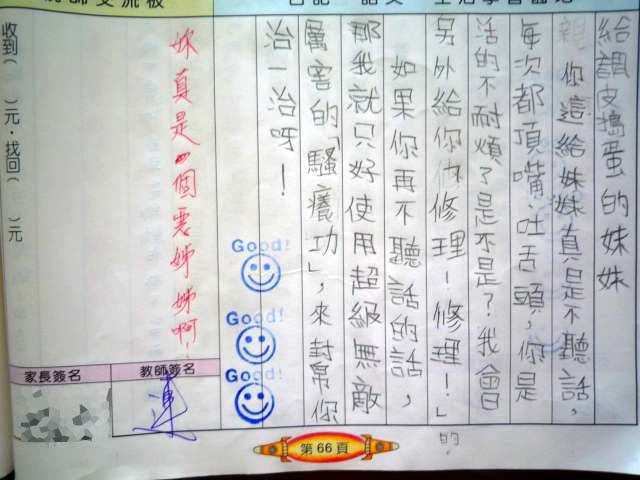 給調皮搗蛋的妹妹
你這給妹妹真是不聽話，
每次都頂嘴、吐舌頭，你是
活的不耐煩了是不是？我會
另外給你「修理-修理！」的!
如果你再不聽話的話，
那我就只好使用超級無敵
厲害的「騷癢功」，來封幫你
治一治呀！
Good!
Good!
Good!
妳真是一個姊姊啊!
教師簽名
家長簽名
收到（　）元・找回（　）元
第66頁